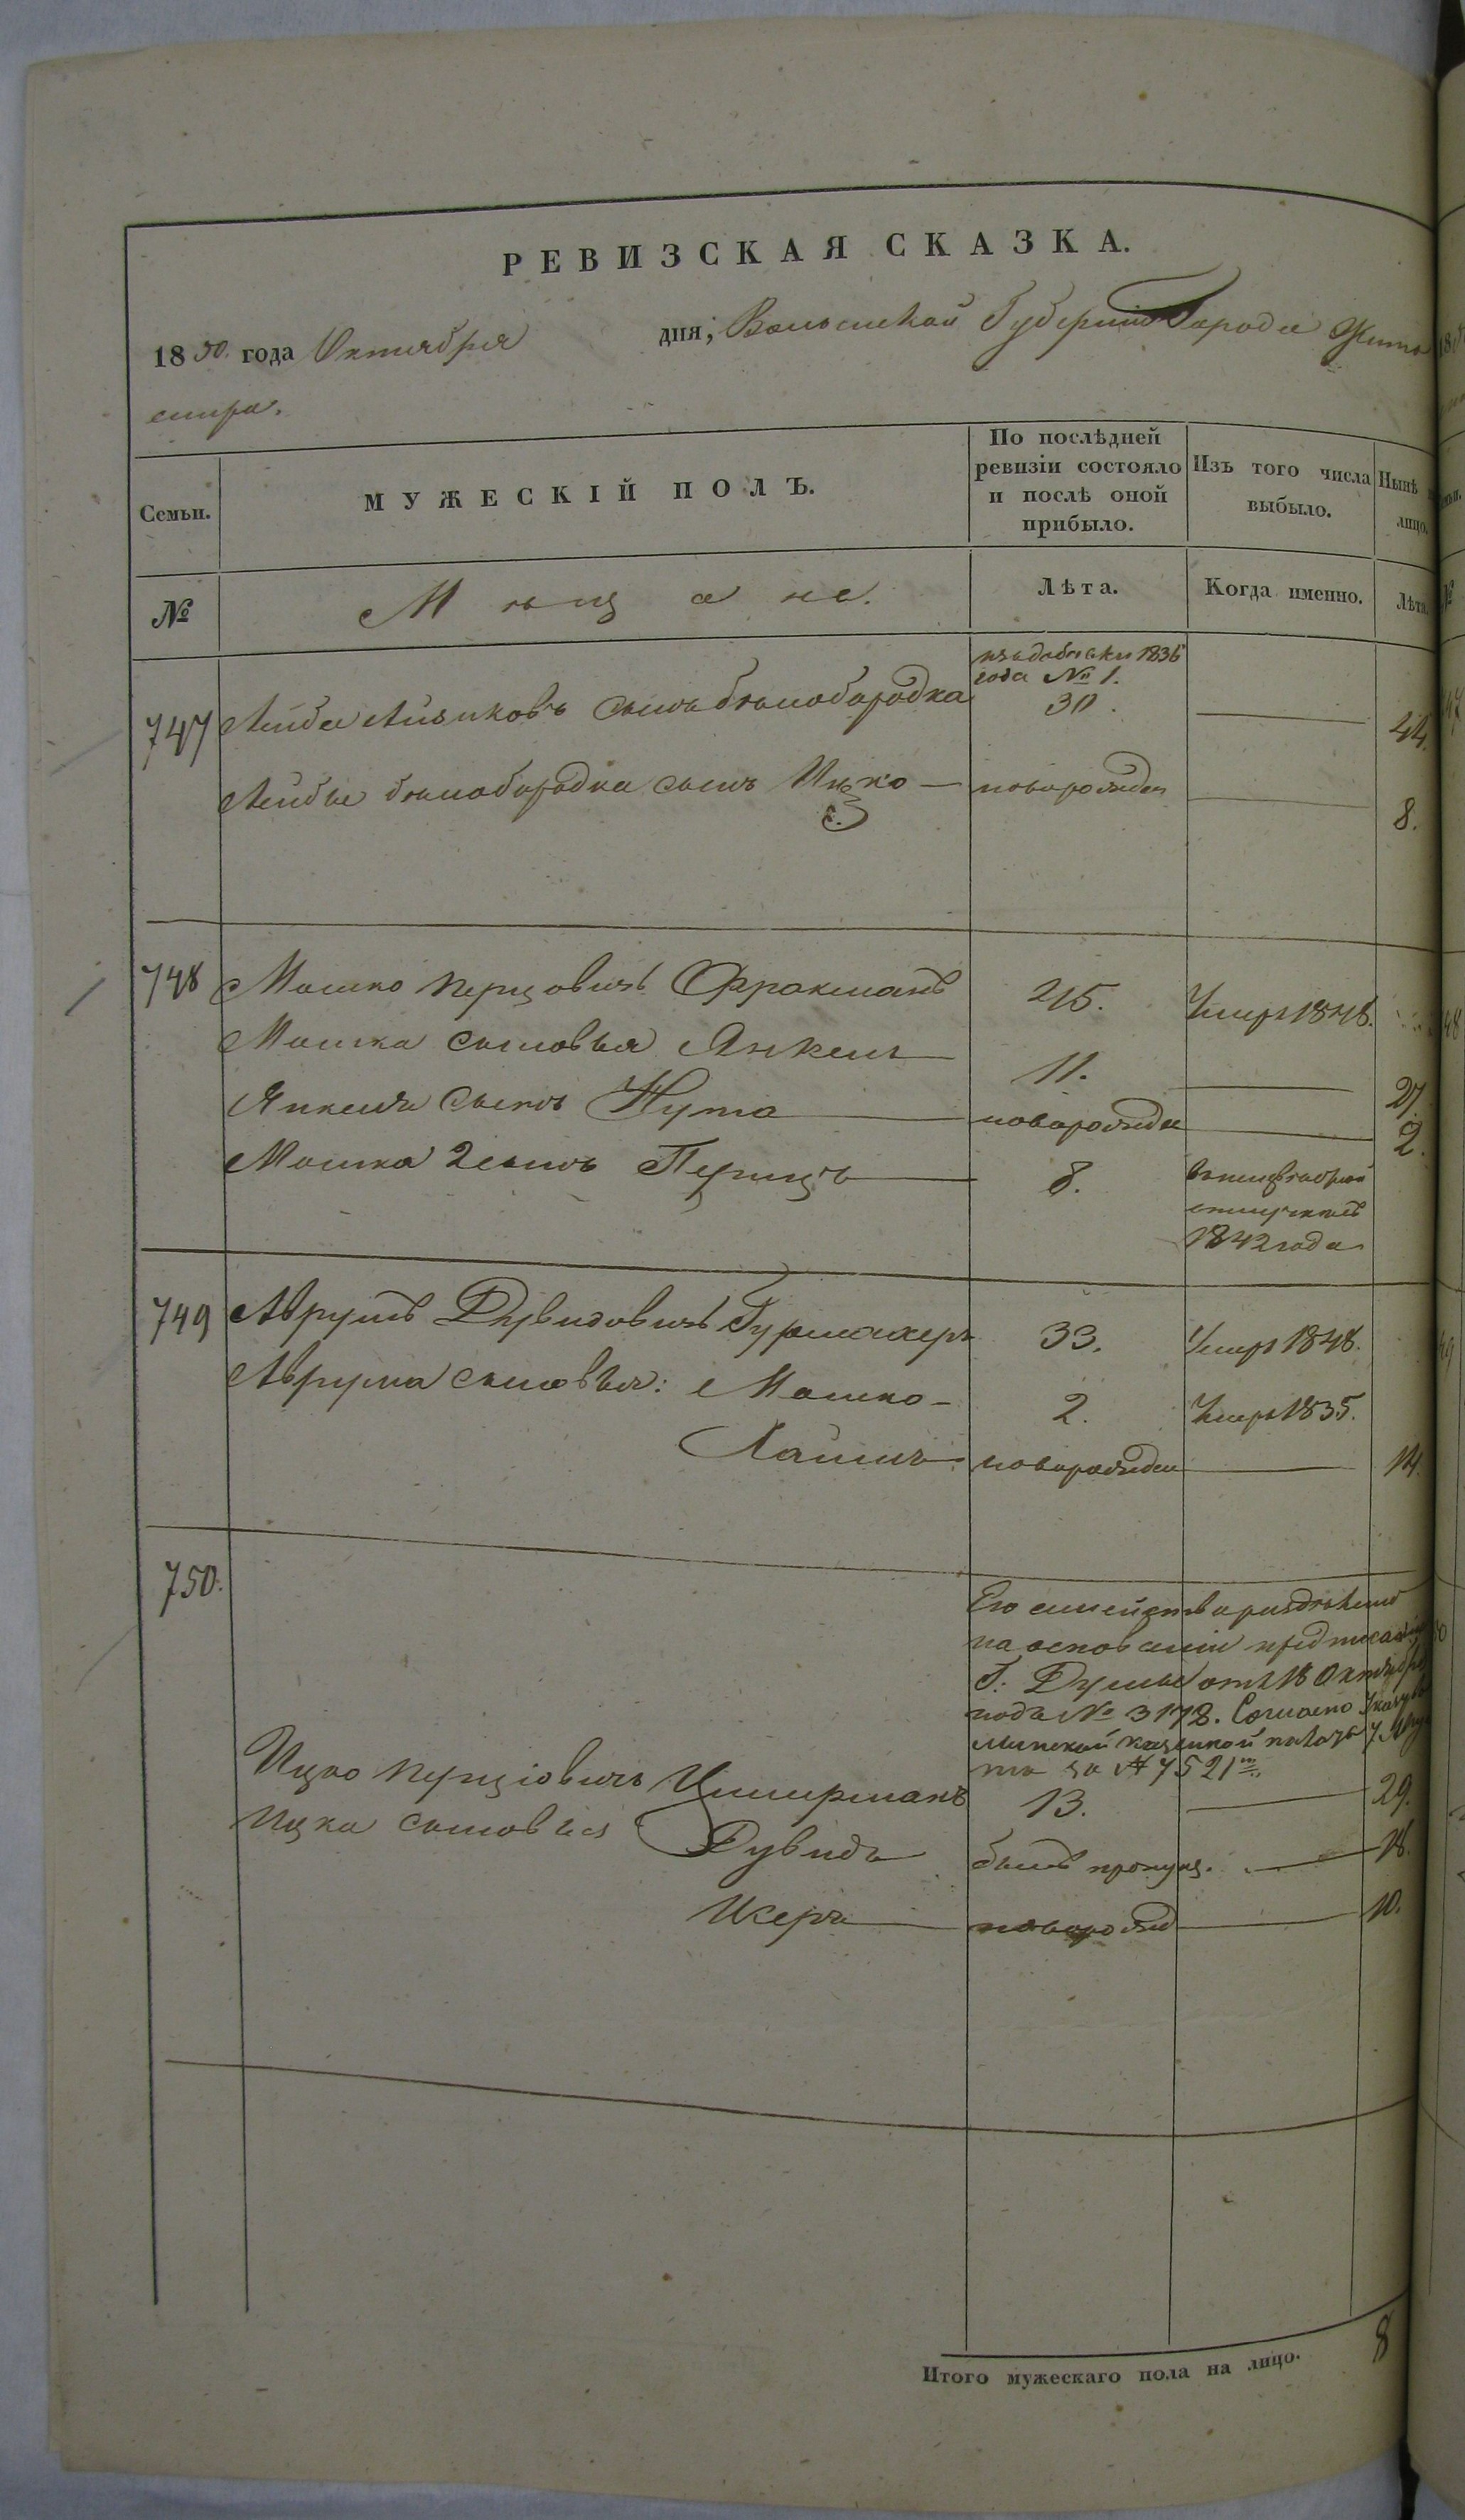 РЕВИЗСКАЯ СКАЗКА.
1850. года Октября дня, Волынской Губерніи Города Жито
мира.
Семьи. МУЖЕСКІЙ ПОЛЪ. По послѣдней ревизіи состояло и послѣ оной прибыло. Изъ того числа выбыло. Нынѣ лицо.
№ Мѣщане. Лѣта. Когда именно. Лѣта.
изъ добавки 1836
года № 1.
747 Лейба Айзиковъ сынъ бѣлобородка 30. 44.
Лейбы бѣлобородка сынъ Ицко новорожден 8.
748 Мошко Перцовичъ Фракманъ 215. Умеръ 1848.
Мошка сыновья Янкель 11. 27.
Янкеля сынъ Нута новорожде 2.
Мошка 2 сынъ Перецъ 8.
1842 года
749 Аврумъ Дувидовичъ Гурмахеръ 33. Умеръ 1848.
Аврума сыновья: Мошко 2. Умеръ 1835.
Хаимъ новорожден 14.
750. Его семейство раздѣлено
на основаніи предписанія
Г. Думы отъ 18 Октября
подъ № 3178. Согласно Указу
казенной палаты 7
та за № 7521м.
Ицко Перціовичъ Цимерманъ 13. 29.
Ицка сыновья Дувидъ былъ пропущ. 18.
Шеръ новорожд 10.
Итого мужескаго пола на лицо. 8